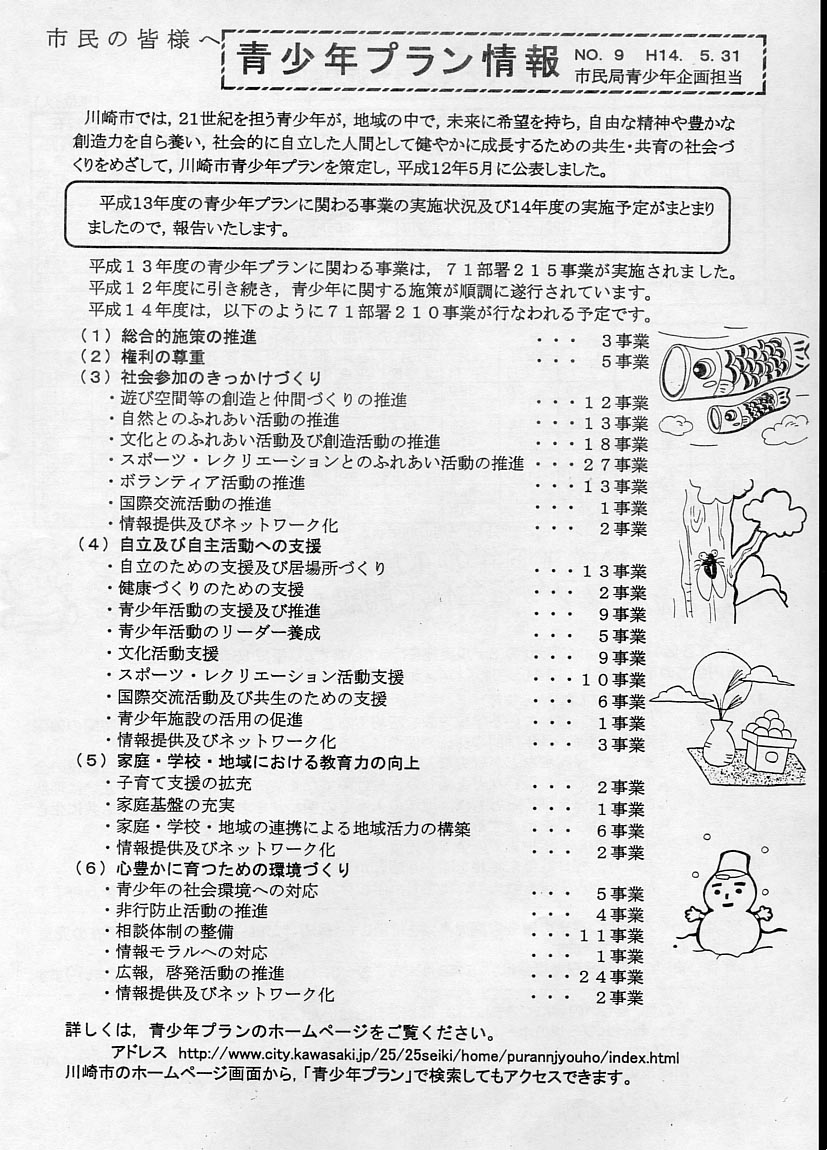 市民の皆様へ
青少年プラン情報
NO.9 H14.5.31
市民局青少年企画担当
川崎市では，21世紀を担う青少年が，地域の中で，未来に希望を持ち，自由な精神や豊かな
創造力を自ら養い，社会的に自立した人間として健やかに成長するための共生・共育の社会づ
くりをめざして，川崎市青少年プランを策定し，平成12年5月に公表しました。
平成13年度の青少年プランに関わる事業の実施状況及び14年度の実施予定がまとまり
ましたので，報告いたします。
平成１３年度の青少年プランに関わる事業は，７１部署２１５事業が実施されました。
平成１２年度に引き続き，青少年に関する施策が順調に遂行されています。
平成１４年度は，以下のように７１部署２１０事業が行なわれる予定です。
（１）総合的施策の推進 ・・・ ３事業
（２）権利の尊重 ・・・ ５事業
（３）社会参加のきっかけづくり
・遊び空間等の創造と仲間づくりの推進 ・・・１２事業
・自然とのふれあい活動の推進 ・・・１３事業
・文化とのふれあい活動及び創造活動の推進 ・・・１８事業
・スポーツ・レクリエーションとのふれあい活動の推進 ・・・２７事業
・ボランティア活動の推進 ・・・１３事業
・国際交流活動の推進 ・・・ １事業
・情報提供及びネットワーク化 ・・・ ２事業
（４）自立及び自主活動への支援
・自立のための支援及び居場所づくり ・・・１３事業
・健康づくりのための支援 ・・・ ２事業
・青少年活動の支援及び推進 ・・・ ９事業
・青少年活動のリーダー養成 ・・・ ５事業
・文化活動支援 ・・・ ９事業
・スポーツ・レクリエーション活動支援 ・・・１０事業
・国際交流活動及び共生のための支援 ・・・ ６事業
・青少年施設の活用の促進 ・・・ １事業
・情報提供及びネットワーク化 ・・・ ３事業
（５）家庭・学校・地域における教育力の向上
・子育て支援の拡充 ・・・ ２事業
・家庭基盤の充実 ・・・ １事業
・家庭・学校・地域の連携による地域活力の構築 ・・・ ６事業
・情報提供及びネットワーク化 ・・・ ２事業
（６）心豊かに育つための環境づくり
・青少年の社会環境への対応 ・・・ ５事業
・非行防止活動の推進 ・・・ ４事業
・相談体制の整備 ・・・１１事業
・情報モラルへの対応 ・・・ １事業
・広報，啓発活動の推進 ・・・２４事業
・情報提供及びネットワーク化 ・・・ ２事業
詳しくは，青少年プランのホームページをご覧ください。
アドレス http://www.city.kawasaki.jp/25/25seiki/home/purannjyouho/index.html
川崎市のホームページ画面から，「青少年プラン」で検索してもアクセスできます。